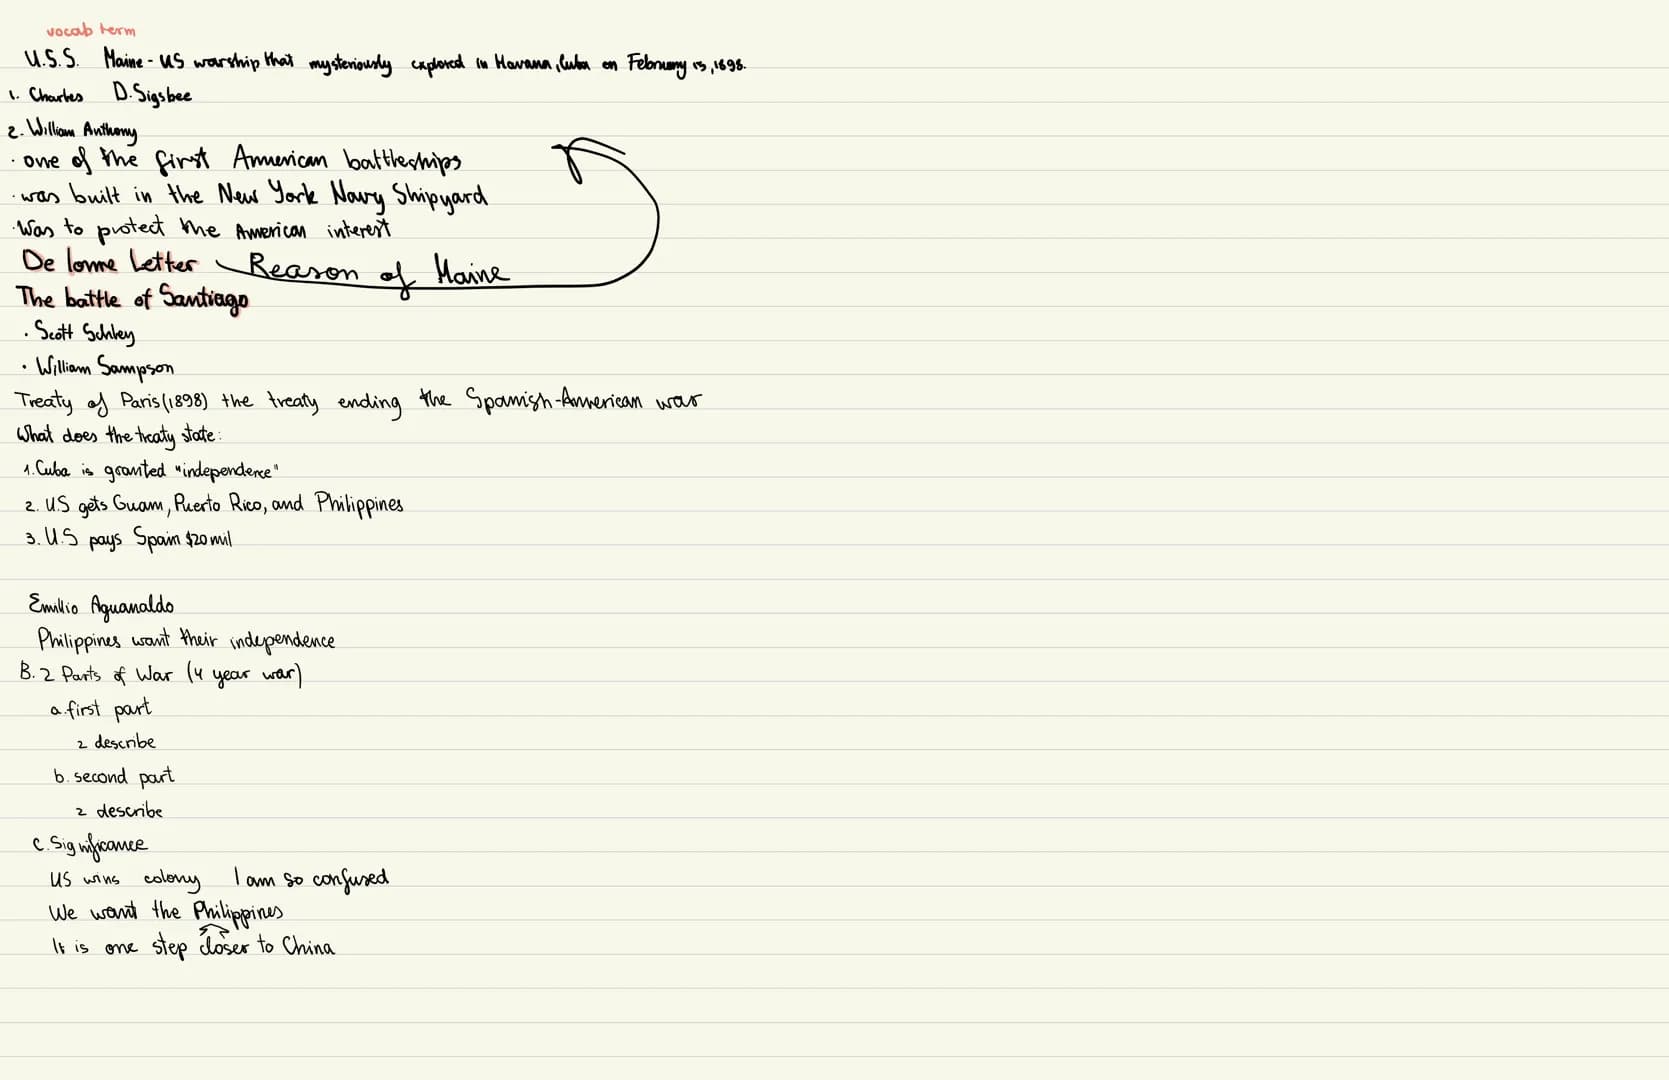 vocab term
U.S.S. Maine - US warship that mysteriously explored in Havana, Cuba on February 15, 1898.
1. Charles D. Sigsbee
2. William Anthony
· one of the first American battleships
· was built in the New York Navy Shipyard
· Was to protect the American interest
De lome Letter Reason of Maine
The battle of Santiago
· Scott Schley
· William Sampson
Treaty of Paris (1898) the treaty ending the Spanish-American war
What does the treaty state:
1. Cuba is granted "independence"
2. U.S gets Guam, Puerto Rico, and Philippines
3. U.S pays Spain $20 mil
Emilio Aguanaldo
Philippines want their independence
B. 2 Parts of War (4 year war)
a. first part
2 describe
b. second part
2 describe
C. Significance
US wins colony I am so confused
We want the Philippines
It is one step closer to China